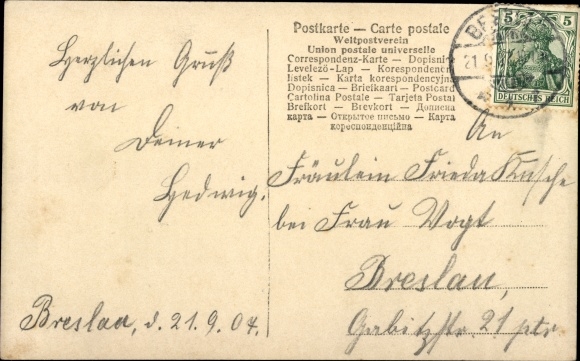 Postkarte — Carte postale
Weltpostverein
Union postale universelle
Correspondenz-Karte — Dopisnice
Levelező-Lap — Korespondenční
lístek — Karta korespondencyjna
Dopisnica — Briefkaart — Postcard
Cartolina Postale — Tarjeta Postal
Brefkort — Brevkort — Дописна
карта — Открытое письмо — Карта
кореспонденційна
5 5
DEUTSCHES REICH
21.9
Herzlichen Gruß
von
Deiner
Hedwig.
Breslau, d. 21.9.04.
An
Fräulein Frieda
bei Frau Vogt
Breslau,
Gabitzstr. 21 ptr.